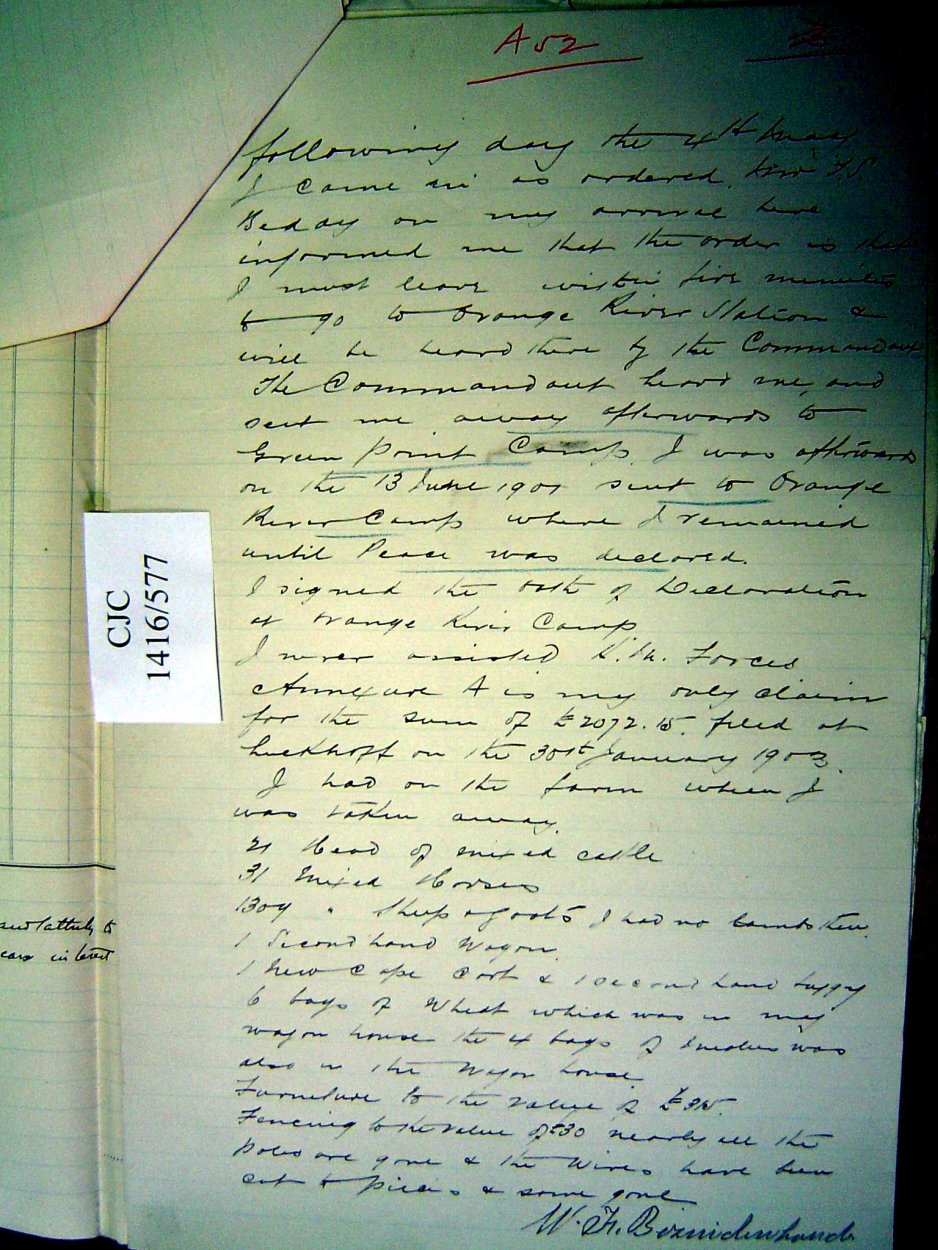 A 52
following day the 4th May
I came in as ordered. Mr
Beday on my arrival here
informed me that the order is that
I must leave within five minutes
to go to Orange River Station &
will be heard there by the Commandant
The Commandant heard me, and
sent me away afterwards to
Green Point Camp. I was afterwards
on the 13 June 1901 sent to Orange
River Camp where I remained
until Peace was declared.
I signed the Oath of Declaration
at Orange River Camp
I never assisted H.M. Forces
Annexure A is my only claim
for the sum of £2072.15. filed at
Luckhoff on the 30th January 1903.
I had on the farm when I
was taken away.
21 Head of mixed cattle
31 Mixed Horses
1304 " Sheep & Goats I had no lambs then.
1 Second hand Wagon.
1 New Cape Cart & 1 second hand buggy
6 bags of Wheat which was in my
wagon house the 4 bags of mealies was
also in the Wagon house
Furneture to the value of £315.
Fencing to the value of £30 nearly all the
Poles are gone & the Wires have been
cut to pieces & some gone
W. F. Bezuidenhoud
CJC
1416/577
to
interest